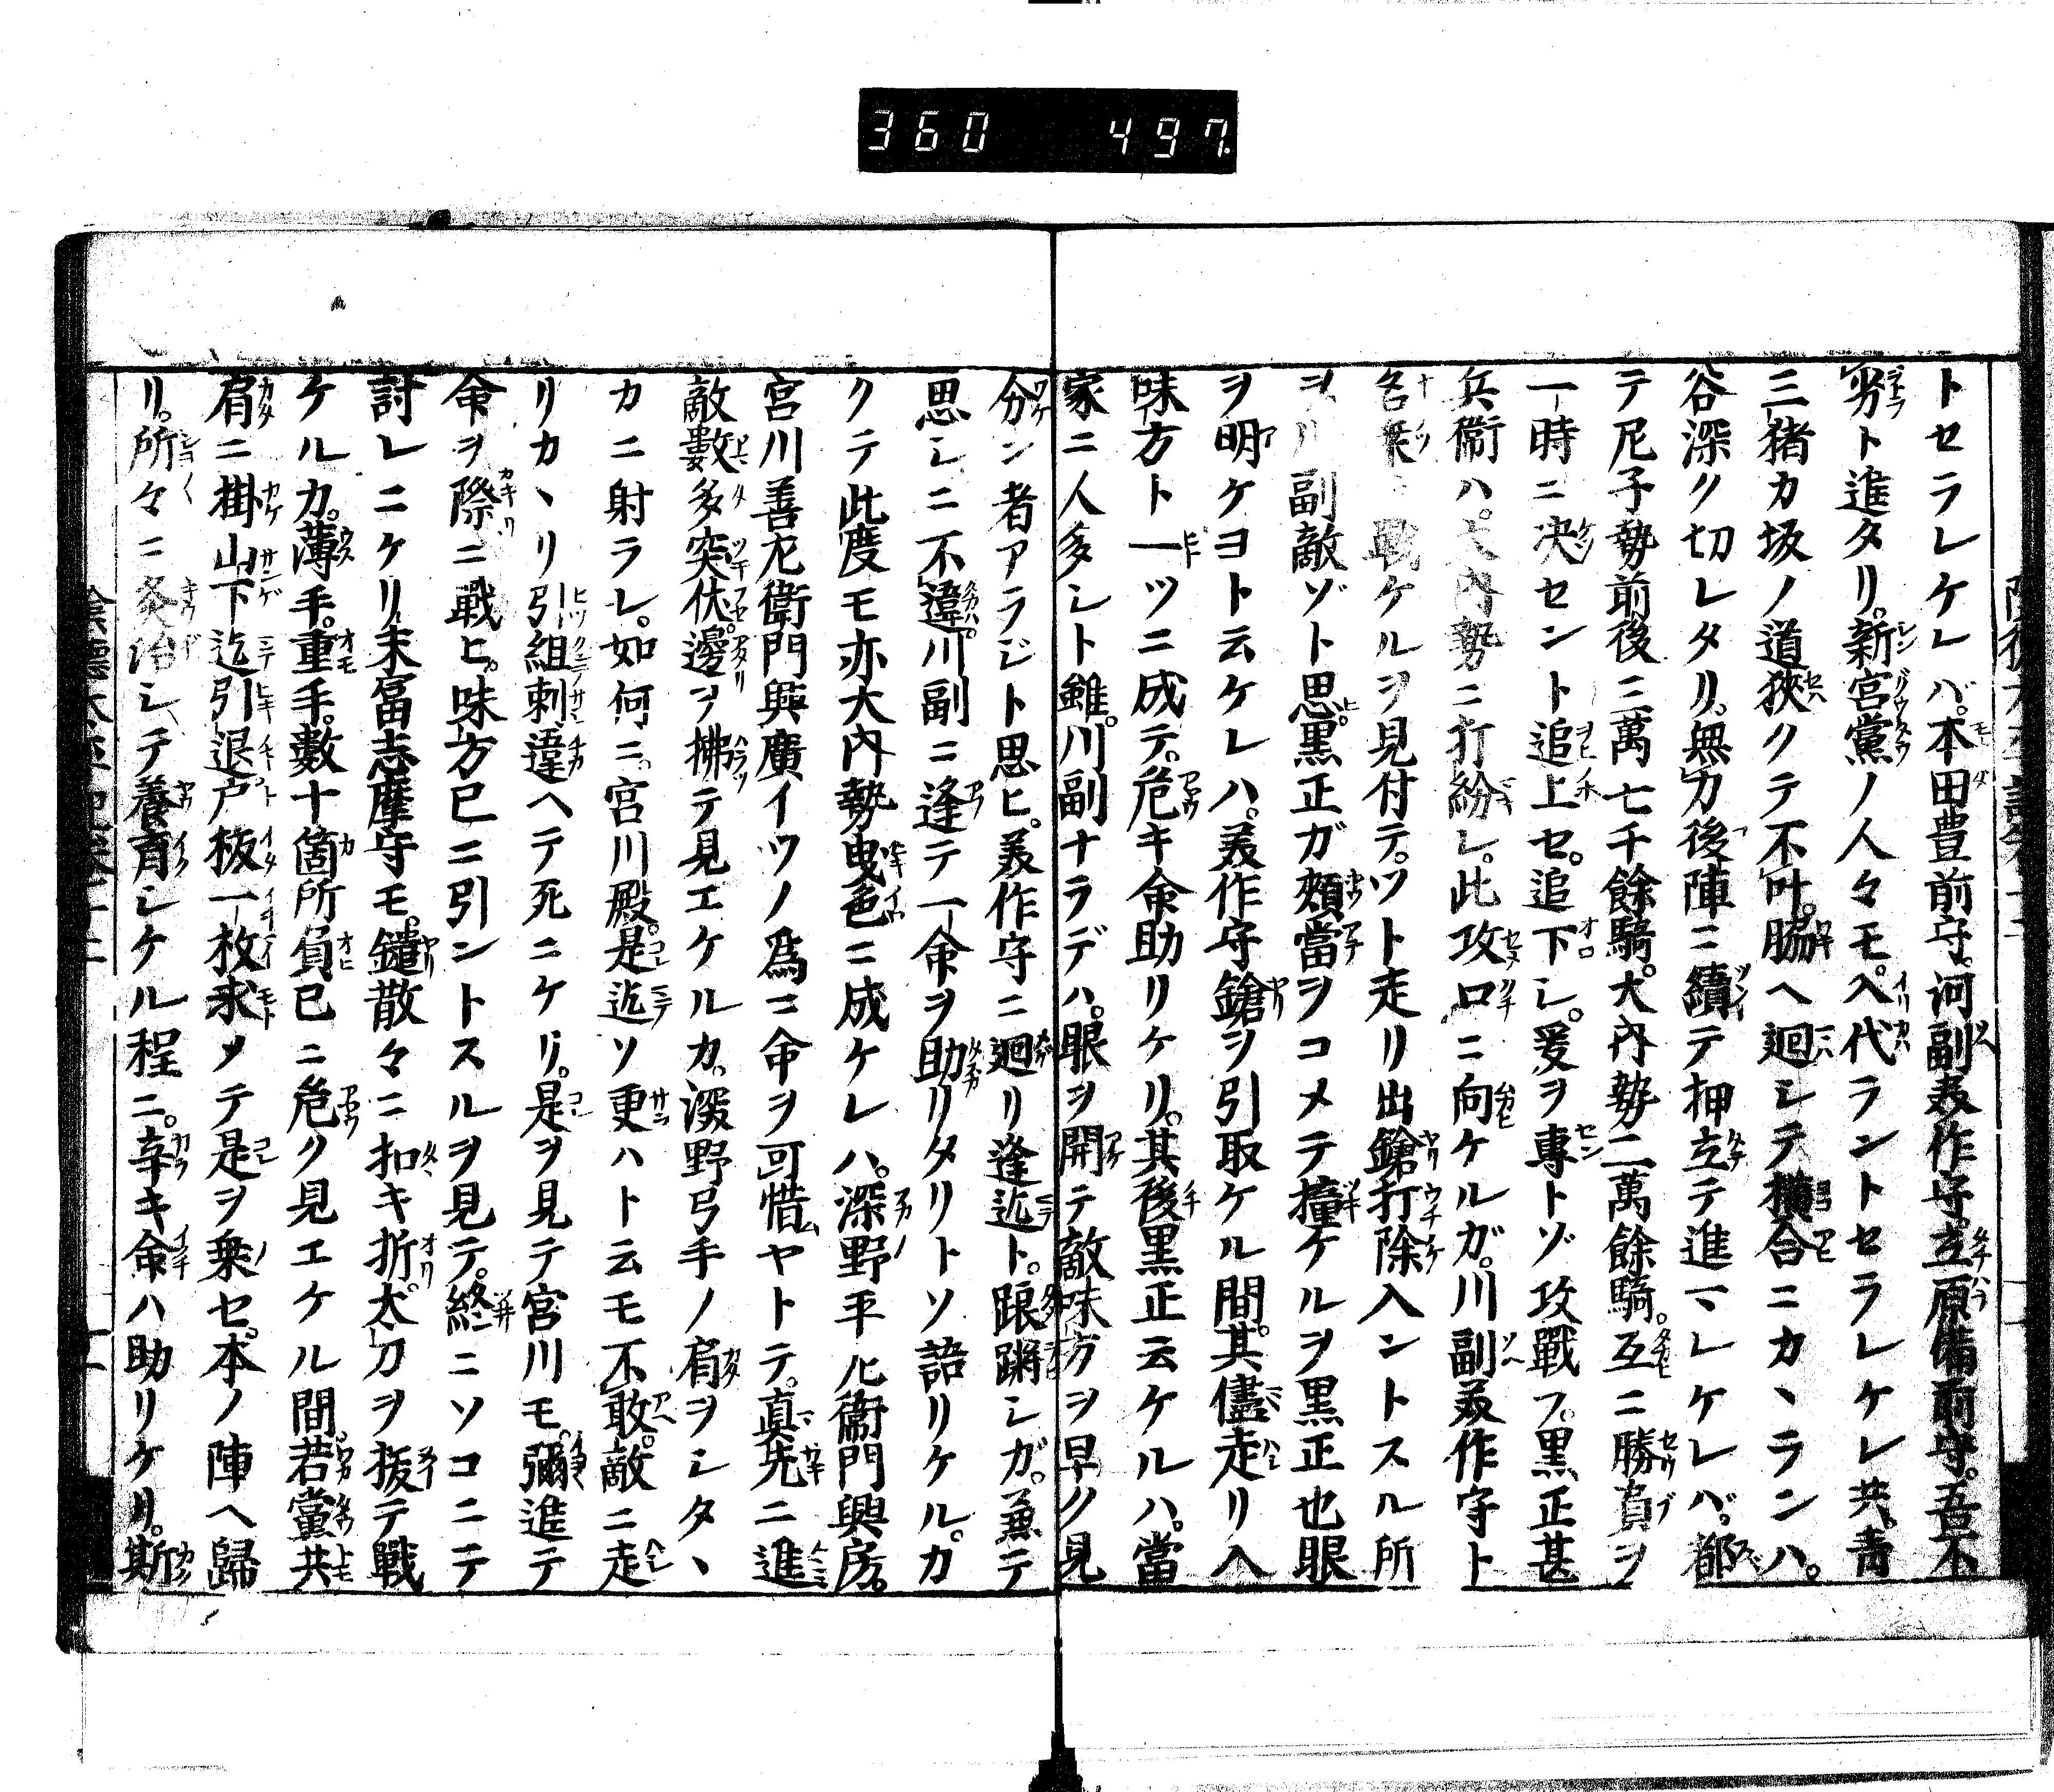 360 497
トセラレケレバ。本田豊前守。河副美作守。立原備前守。吾不
劣ト進タリ。新宮黨ノ人々モ。入代ラントセラレケレ共。青
三猪カ坂ノ道狹クテ不叶。脇ヘ廻シテ横合ニカヽランハ。
谷深ク切レタリ。無力後陣ニ續テ押立テ進マレケレバ。都
テ尼子勢前後三萬七千餘騎。大内勢二萬餘騎。互ニ勝負ヲ
一時ニ决セント追上セ。追下シ。爰ヲ專トゾ攻戰フ。黒正甚
兵衞ハ。大内勢ニ打紛レ。此攻口ニ向ケルガ。川副美作守ト
名乗 戰ケルヲ見付テ。ツト走リ出鎗打除入ントスル所
ヲ 川副敵ゾト思。黒正ガ頰當ヲコメテ撞ケルヲ黒正也眼
ヲ明ケヨト云ケレハ。美作守鎗ヲ引取ケル間。其儘走リ入
味方ト一ツニ成テ。危キ命助リケリ。其後黒正云ケルハ。當
家ニ人多シト雖。川副ナラデハ。眼ヲ開テ敵味方ヲ早ク見
分ン者アラジト思ヒ。美作守ニ廻リ逢迄ト。踉蹡シガ。兼テ
思シニ不違。川副ニ逢テ一命ヲ助リタリトソ語リケル。カ
クテ此度モ亦大内勢曳色ニ成ケレハ。深野平左衞門興房。
宮川善左衛門興廣イツノ爲ニ命ヲ可惜ヤトテ。真先ニ進
敵數多突伏。邊ヲ拂テ見エケルカ。深野弓手ノ肩ヲシタヽ
カニ射ラレ。如何ニ。宮川殿。是迄ソ更ハト云モ不敢。敵ニ走
リカヽリ引組刺違ヘテ死ニケリ。是ヲ見テ宮川モ。彌進テ
命ヲ際ニ戰ヒ。味方已ニ引ントスルヲ見テ。終ニソコニテ
討レニケリ。末冨志摩守モ。鑓散々ニ扣キ折。太刀ヲ拔テ戰
ケルカ。薄手。重手。數十箇所負已ニ危ク見エケル間。若黨共
肩ニ掛山下迄引退戸板一枚求メテ是ヲ乗セ。本ノ陣ヘ歸
リ。所々ニ灸治シテ養育シケル程ニ。辛キ命ハ助リケリ。斯